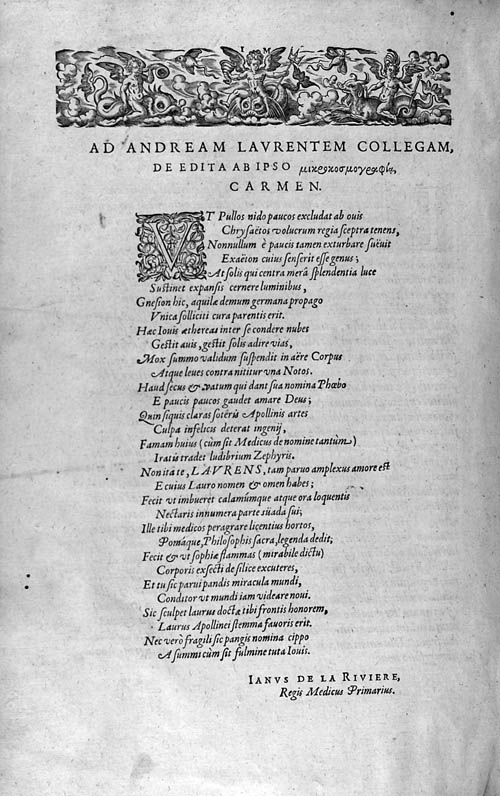 I M
AD ANDREAM LAVRENTEM COLLEGAM,
DE EDITA AB IPSO μικροκοσμογραφίᾳ,
CARMEN.
VT Pullos nido paucos excludat ab ouis
Chrysaëtos volucrum regia sceptra tenens,
Nonnullum è paucis tamen exturbare suëuit
Exaëton cuius senserit esse genus;
At solis qui contra merâ splendentia luce
Sustinet expansis cernere luminibus,
Gnesion hic, aquilæ demum germana propago
Vnica solliciti cura parentis erit.
Hæc Iouis æthereas inter se condere nubes
Gestit auis, gestit solis adire vias,
Mox summo validum suspendit in aëre Corpus
Atque leues contra nititur vna Notos.
Haud secus & vatum qui dant sua nomina Phœbo
E paucis paucos gaudet amare Deus;
Quin siquis claras soteris Apollinis artes
Culpa infelicis deterat ingenij,
Famam huius (cùm sit Medicus de nomine tantùm)
Iratis tradet ludibrium Zephyris.
Non ita te, LAVRENS, tam paruo amplexus amore est
E cuius Lauro nomen & omen habes;
Fecit vt imbueret calamúmque atque ora loquentis
Nectaris innumera parte süada sui;
Ille tibi medicos peragrare licentius hortos,
Pomáque, Philosophis sacra, legenda dedit;
Fecit & vt sophiæ flammas (mirabile dictu)
Corporis exsecti de silice excuteres,
Et tu sic parui pandis miracula mundi,
Conditor vt mundi iam videare noui.
Sic sculpet laurus doctæ tibi frontis honorem,
Laurus Apollinei stemma fauoris erit.
Nec verò fragili sic pangis nomina cippo
A summi cùm sit fulmine tuta Iouis.
IANVS DE LA RIVIERE,
Regis Medicus Primarius.